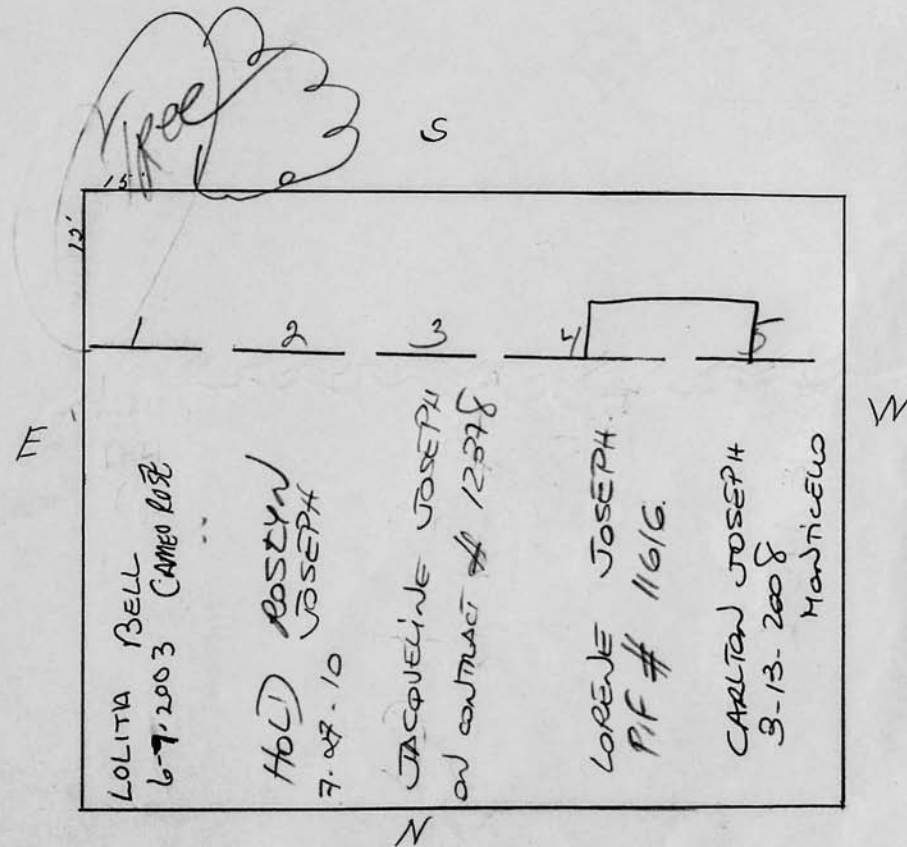 Tree
S
15'
12'
1 2 3 4 5
E
W
LOLITA BELL
6-7-2003 CAMEO ROSE
HOLD ROSLYN
JOSEPH
JACQUELINE JOSEPH
ON CONTRACT # 12378
LORENE JOSEPH
PIF # 11616
CARLTON JOSEPH
3-13-2008
MONTICELLO
N